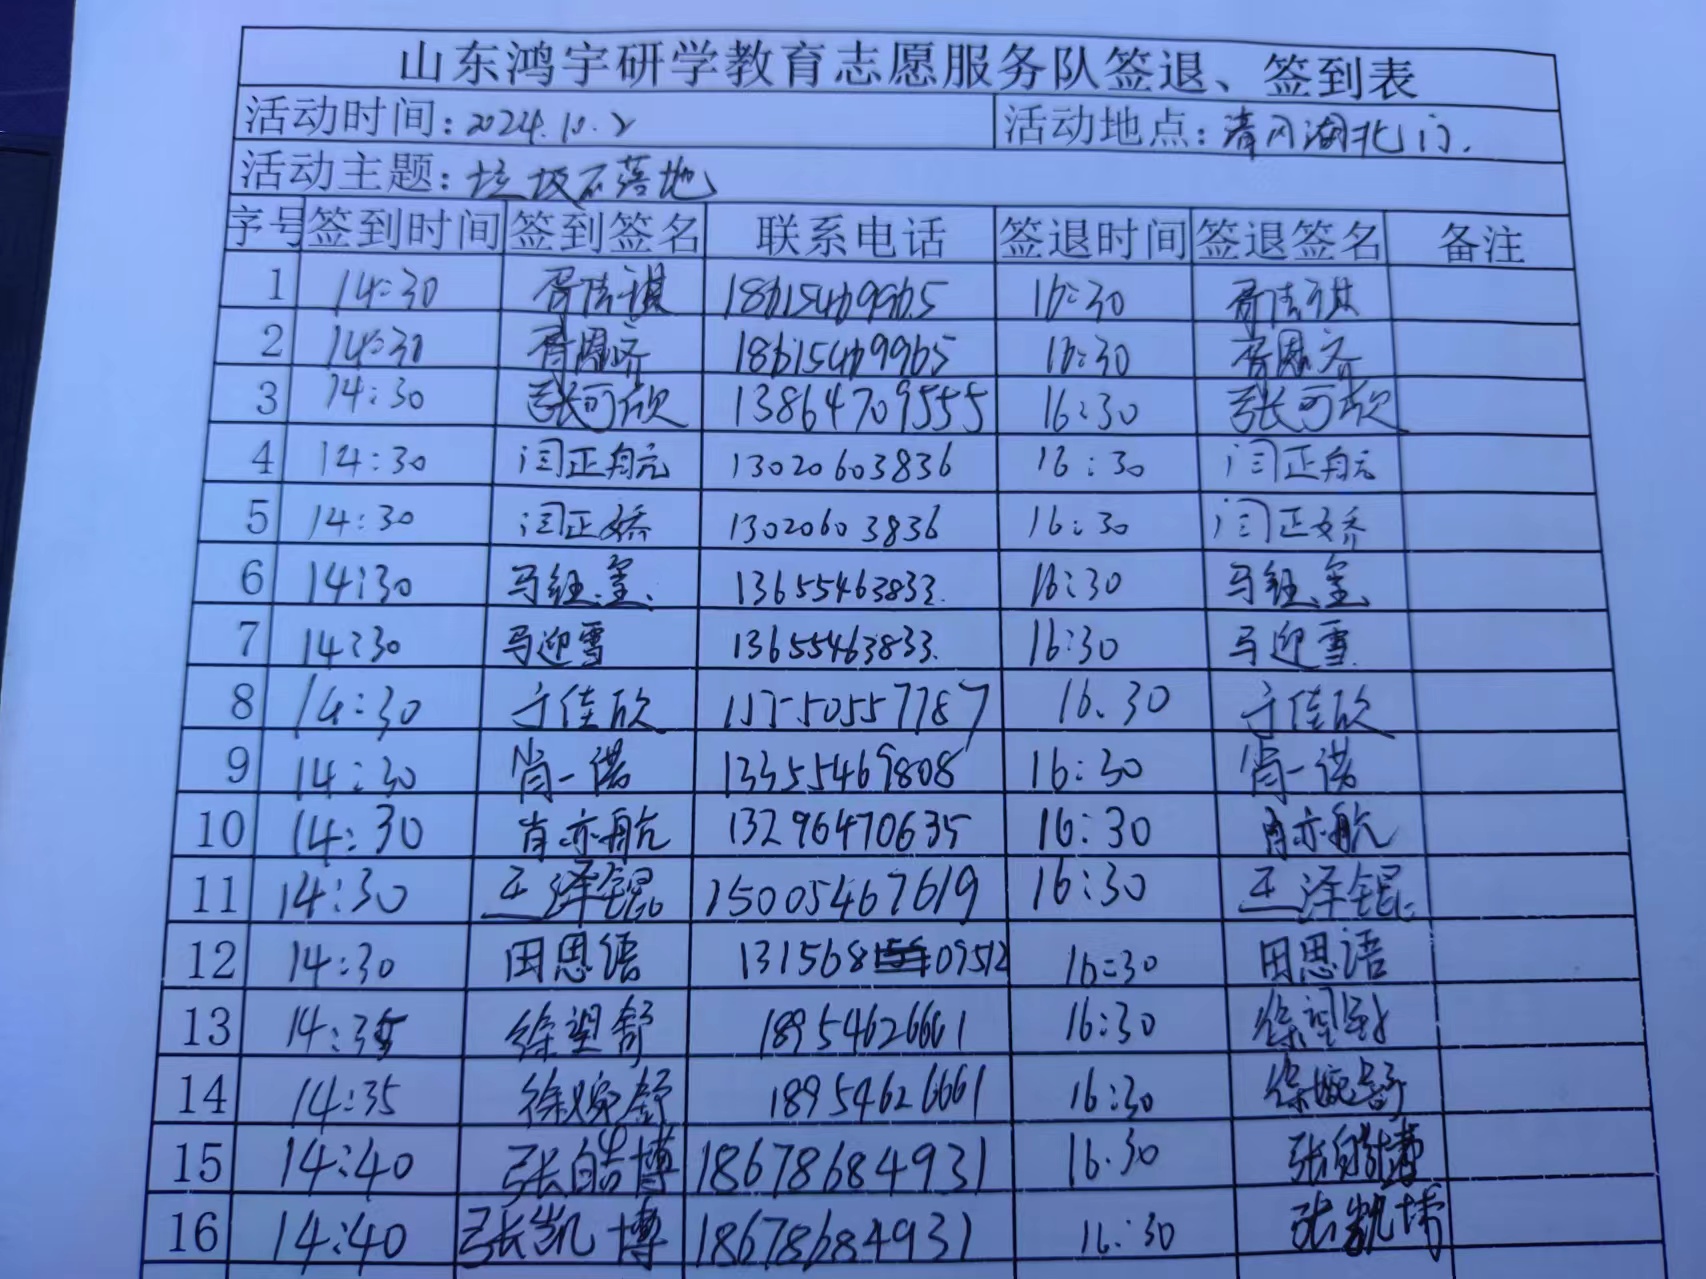 山东鸿宇研学教育志愿服务队签退、签到表
活动时间：2024.10.2 活动地点：清风湖北门.
活动主题：垃圾不落地
序号 签到时间 签到签名 联系电话 签退时间 签退签名 备注
1 14:30 18615469965 16:30
2 14:30 18615469965 16:30
3 14:30 张可欣 13864709555 16:30 张可欣
4 14:30 闫正航 13020603836 16:30 闫正航
5 14:30 闫正娇 13020603836 16:30 闫正娇
6 14:30 13655463833. 16:30
7 14:30 马迎雪 13655463833. 16:30 马迎雪
8 14:30 于佳欣 16.30 于佳欣
9 14:30 肖一诺 13355469808 16:30 肖一诺
10 14:30 肖亦航 13296470635 16:30 肖亦航
11 14:30 王泽锟 15005467619 16:30 王泽锟
12 14:30 田思语 13156809512 16:30 田思语
13 14:35 徐望舒 18954626661 16:30 徐望舒
14 14:35 徐婉舒 18954626661 16:30 徐婉舒
15 14:40 张皓博 18678684931 16.30 张皓博
16 14:40 张凯博 18678684931 16:30 张凯博